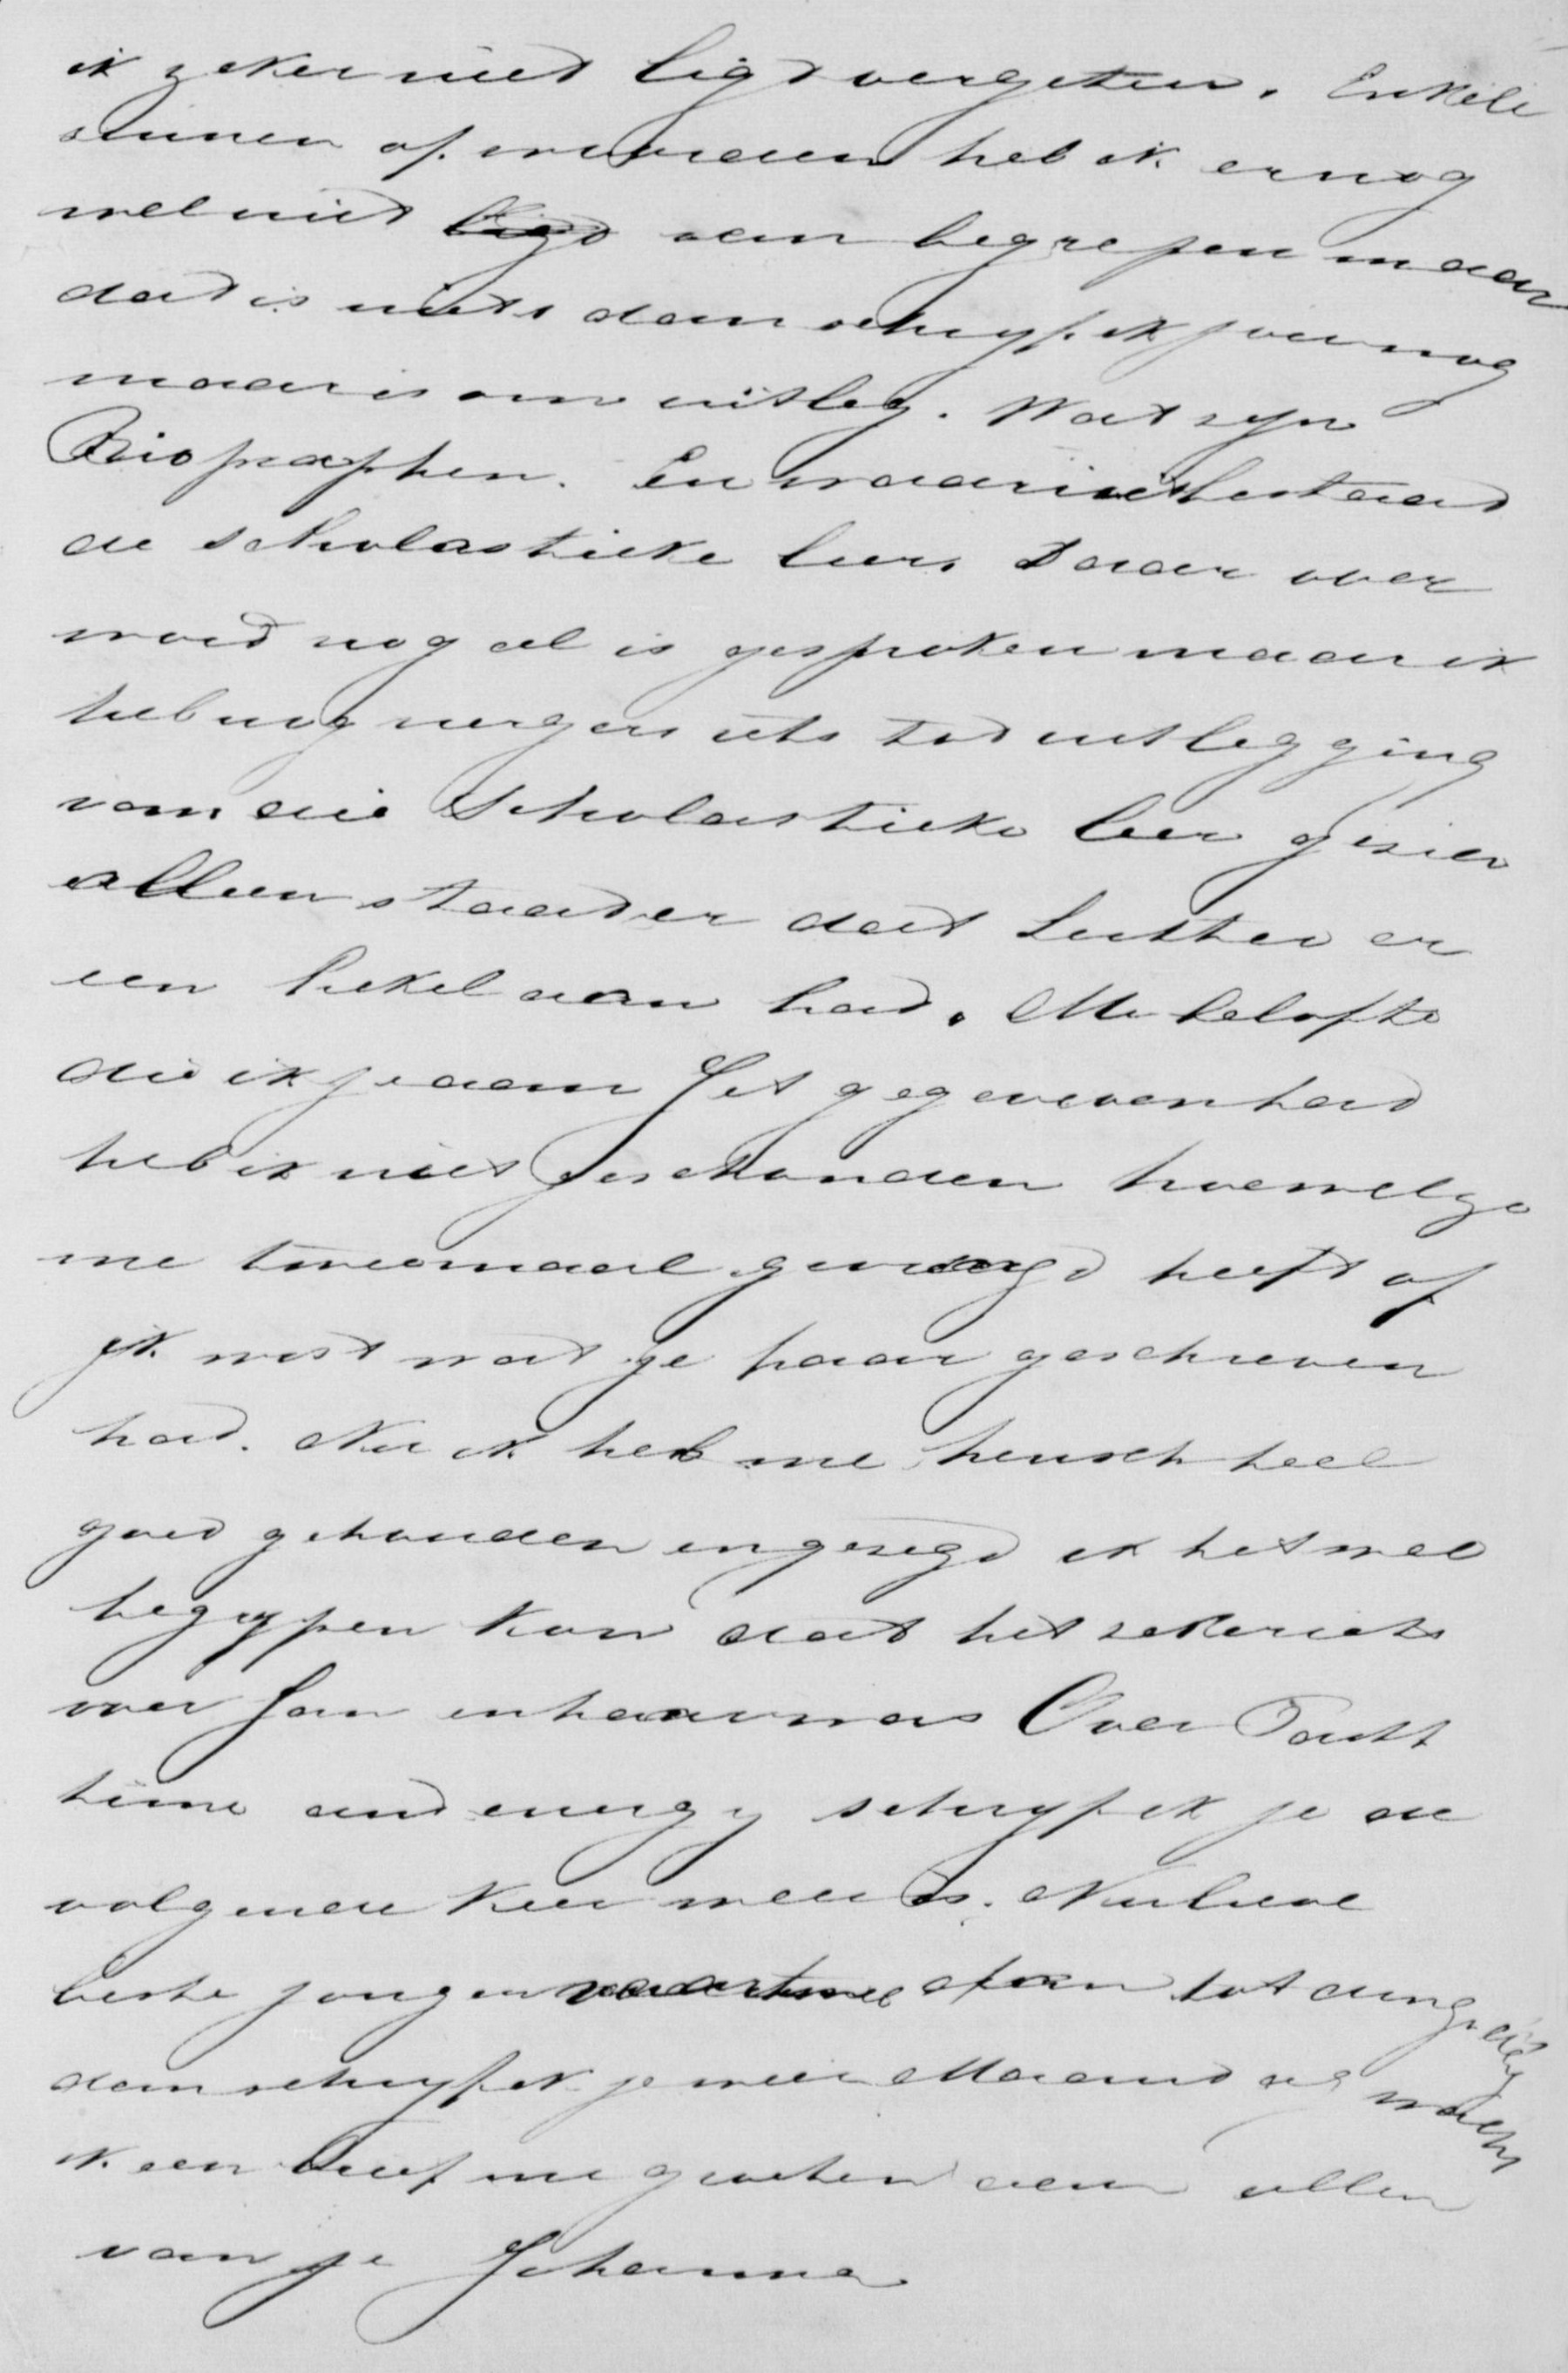 ik zeker niet ligt vergeten. Enkele
zinnen of woorden heb ik er nog
wel niet ligt van begrepen maar
dat is niets dan schryf ik jou nog
maar is om uitleg. Wat zyn
Biographen. En waarin bestaat
de scholastieke leer. Daar over
word nog al is gesproken maar ik
heb nog nergens iets tot uitlegging
van die Scholastieke leer gezien
alleen staat er dat Luther er
een hekel aan had. Me belofte
die ik je aan Jet gegeven had
heb ik niet geschonden hoewel ze
me tweemaal gevraagd heeft of
ik wist wat je haar geschreven
had. Nu ik heb me heusch heel
goed gehouden en gezegd ik het wel
begrypen kon dat het zeker iets
over Jan en haar was Over
time and energy schryf ik je de
volgende keer meer is. Nu lieve
beste jongen dan tot
dan schryf ik je weer Maandag wacht
ik een brief me groeten aan allen
van je Johanna